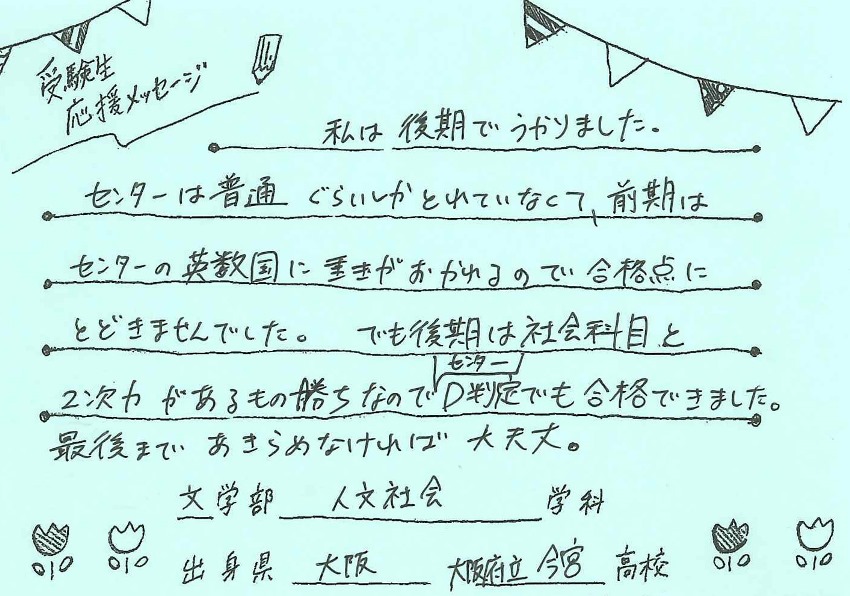 受験生
応援メッセージ
私は 後期で うかりました。
センターは普通 ぐらいしかとれていなくて、前期は
センターの 英数国に 重きがおかれるので 合格点に
とどきませんでした。 でも後期は社会科目と
センター
2次力 があるもの勝ちなのでD判定でも 合格できました。
最後まで あきらめなければ 大天丈。
文学部 人文社会 学科
出身県 大阪 大阪府立 今宮 高校